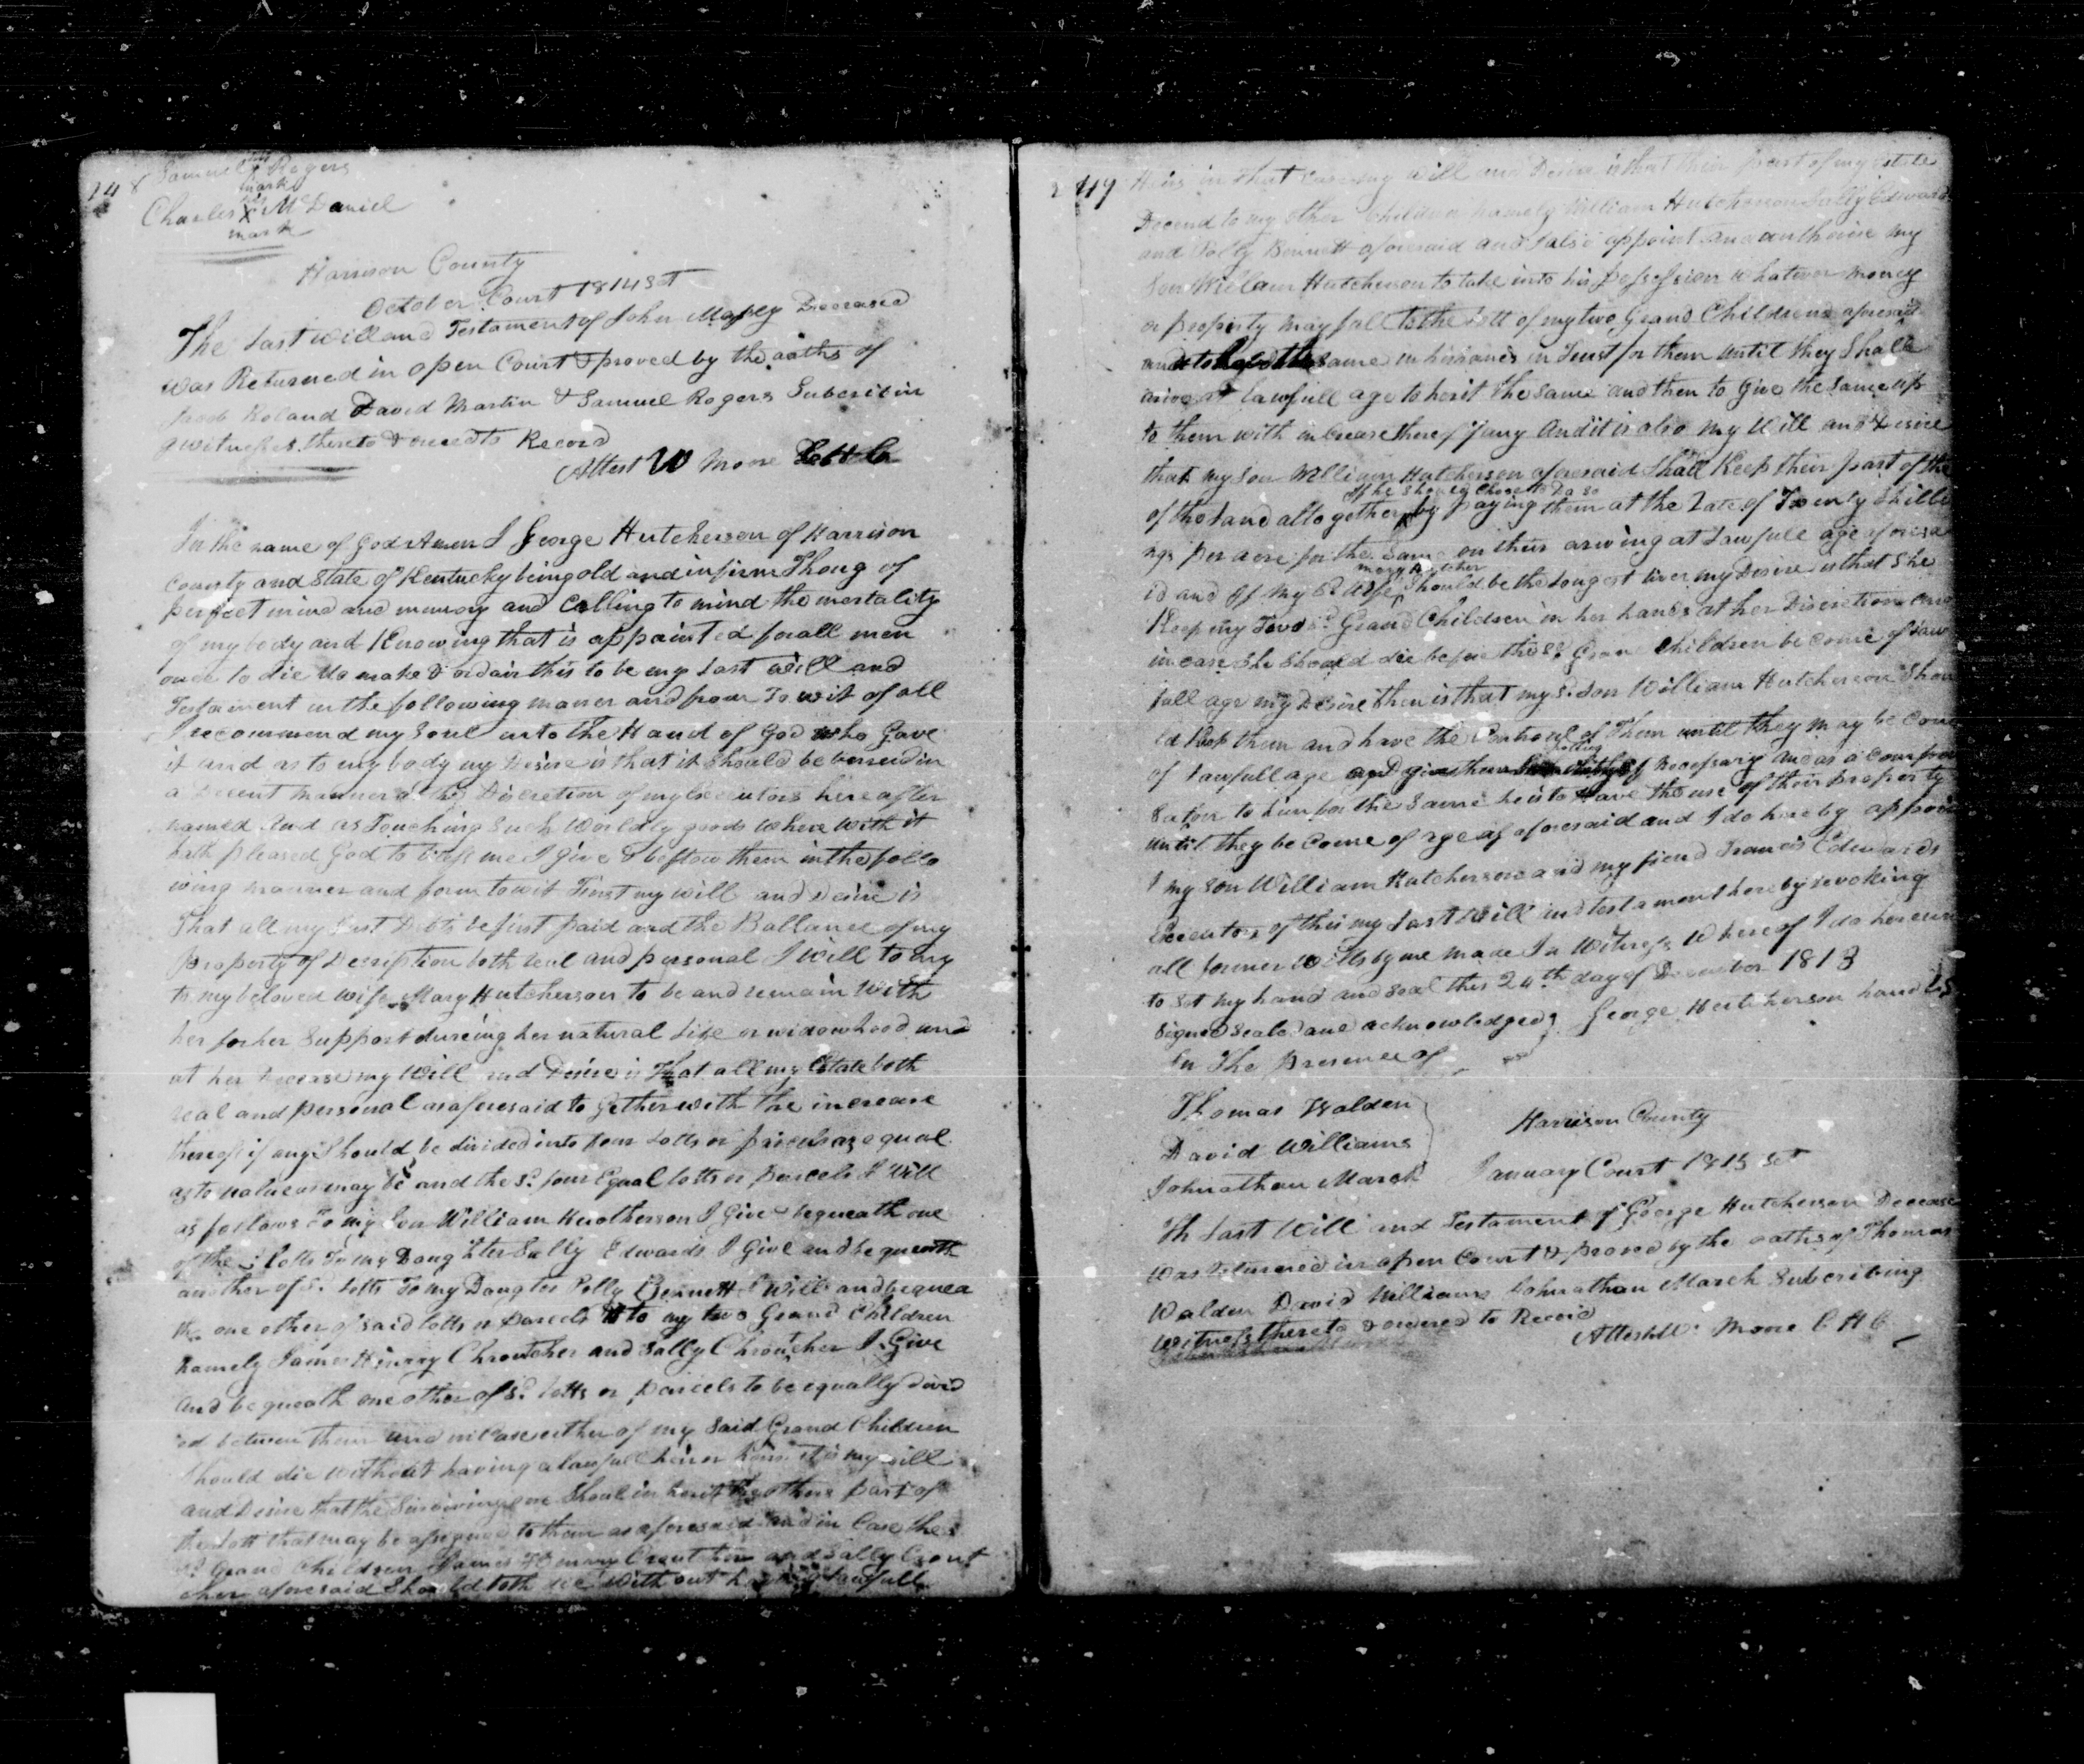 248
Samuel his X Rogers
mark
Charles his X McDaniel
mark
Harrison County
October Court 1814 Sct
The Last will and Testament of John Mapey Deceased
was Returned in open Court & proved by the oaths of
Jacob Roland David Martin & Samuel Rogers Subscribin
g witnesses thereto & orderd to Record
Attest W Moore
In the name of God Amen I George Hutcherson of Harrison
County and State of Kentucky being old and infirm Thoug of
perfect mind and memory and Calling to mind the mortality
of my body and Knowing that is appointed for all men
once to die Do make & ordain this to be my Last will and
Testament in the following maner and form To wit of all
I recommend my Soul into the Hand of God who Gave
it and as to my body my Desire is that it should be burried in
a Decent manner at the Discretion of my Executors hereafter
named And as Touching Such Worldly goods where with it
hath pleased God to bless me I give & bestow them in the follo
wing manner and form towit First my will and Desire is
That all my Just Debts be first paid and the Ballance of my
property of Description both real and personal I will to my
to my beloved wife Mary Hutcherson to be and remain with
her for her Support dureing her natural life or widowhood and
at her Decease my Will and Desire is That all my Estate both
real and personal as aforesaid to gether with the increase
thereof if any Should be divided into four Lotts or parcels as equal
as to value as may be and the Sd. four Equal lotts or parcels I Will
as follows To my Son William Hutcherson I Give bequeath one
of the Lotts To my Daughter Sally Edwards I Give and bequeath
another of Sd. Lotts To my Daugter Polly Bennett I Will and bequea
th one other of said lotts or Parcels to my two Grand Children
namely James Hinnry Chroutcher and Sally Chroutcher I Give
and bequeath one other of Sd. lotts or parcels to be equally divid
ed between them and in Case either of my Said Grand Children
Should die without having a lawfull heir or heirs it is my will
and Desire that the Surviving one Should in herit the others part of
the Lott that may be assigned to them as aforesaid and in Case the
Sd. Grand Children James Hinnry Crout her and Sally Crout
cher aforesaid Should both die with out having lawfull
249
Heirs in that Case my Will and Desire is that their part of my estate
Decend to my other Children namely William Hutcherson Sally Edwards
and Polly Bennett aforesaid and I also appoint and authorise my
Son William Hutcherson to take into his possession whatever money
or property may fall to the Lott of my two Grand Children aforesaid
and to hold the same in his hands in Trust for them until they Shall
arive at Lawfull age to herit the same and then to Give the same up
to them with increase thereof if any And it is also my Will and Desire
that my Son William Hutcherson aforesaid Shall Keep their part of the
of the Land altogether If he Should Chose to Do so by paying them at the Rate of Twenty Shilli
ngs per acre for the same on their ariving at Lawfull age aforesa
id and If my Sd. Wife Mary Hutcher Should be the Longest liver my Desire is that She
Keep my Two Sd. Grand Children in her hands at her Discretion and
in case She Should die before those Grand Children become of Law
full age my Desire then is that my Sd. Son William Hutcherson Shou
ld Keep them and have the Controul of Them until they may be Come
of Lawfull age and give them if necessary and as a Compen
sation to him for the same he is to have the use of their property
until they be come of age as aforesaid and I do hereby appoin
t my Son William Hutcherson and my friend Francis Edwards
Executors of this my Last Will and testament hereby revoking
all former Wills by me made In Witness Whereof I do hereun
to set my hand and seal this 24th day of December 1813
Signed Sealed and acknowledged George Hutcherson hand LS
In The Presence of
Thomas Walden
David Williams
Johnathan March
Harrison County
January Court 1815 Sct
Th Last Will and Testament of George Hutcherson Decease
Was Returned in open Court & proved by the oaths of Thomas
Walden David Williams Johnathan March Subscribing
witness thereto & ordered to Record
Attest W. Moore C H C